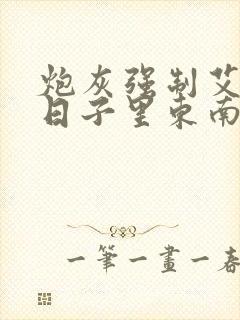 炮灰强制艾
日子里东南
一筆一畫一春